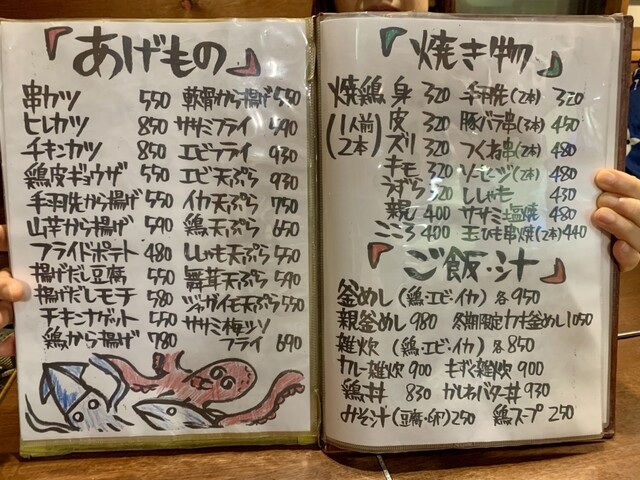 『あげもの』
串カツ 550 軟骨から揚げ 550
ヒレカツ 850 ササミフライ 590
チキンカツ 850 エビフライ 930
鶏皮ギョウザ 550 エビ天ぷら 930
手羽先から揚げ 550 イカ天ぷら 750
山芋から揚げ 590 鶏天ぷら 650
フライドポテト 480 ししゃも天ぷら 550
揚げだし豆腐 550 舞茸天ぷら 590
揚げだしモチ 580 ジャガイモ天ぷら 550
チキンナゲット 550 ササミ梅シソ
鶏から揚げ 780 フライ 690
『焼き物』
焼鶏 身 320 手羽先(2本) 320
(1人前 皮 320 豚バラ串(3本) 450
2本) ズリ 320 つくね串(2本) 480
キモ 320 ソーセージ(2本) 480
うずら 320 ししゃも 430
親 400 ササミ塩焼 480
こころ 400 玉ひも串焼(2本) 440
『ご飯・汁』
釜めし(鶏・エビ・イカ) 各950
親釜めし 980 冬期限定カキ釜めし 1050
雑炊 (鶏・エビ・イカ) 各850
カレー雑炊 900 もずく雑炊 900
鶏丼 830 かしわバター丼 930
みそ汁(豆腐・卵) 250 鶏スープ 250